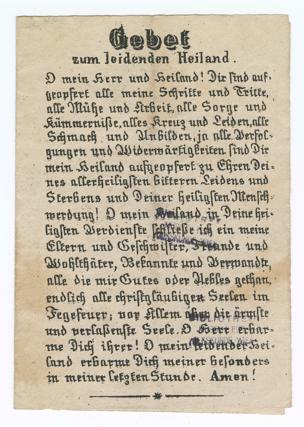 Gebet
zum leidenden Heiland.
O mein Herr und Heiland! Dir sind auf-
geopfert alle meine Schritte und Tritte,
alle Mühe und Arbeit, alle Sorge und
Kümmerniße, alles Kreuz und Leiden, alle
Schmach und Unbilden, ja alle Verfol-
gungen und Widerwärtigkeiten sind Dir
mein Heiland aufgeopfert zu Ehren Dei-
nes allerheiligsten bitteren Leidens und
Sterbens und Deiner heiligsten Mensch-
werdung! O mein Heiland in Deine hei-
ligsten Verdienste schließe ich ein meine
Eltern und Geschwister, Freunde und
Wohlthäter, Bekannte und Verwandte,
alle die mir Gutes oder Uebles gethan,
endlich alle christgläubigen Seelen im
Fegefeuer; vor Allem aber die ärmste
und verlaßenste Seele. O Herr erbar-
me Dich ihrer! O mein leidender Hei-
land erbarme Dich meiner besonders
in meiner letzten Stunde. Amen!